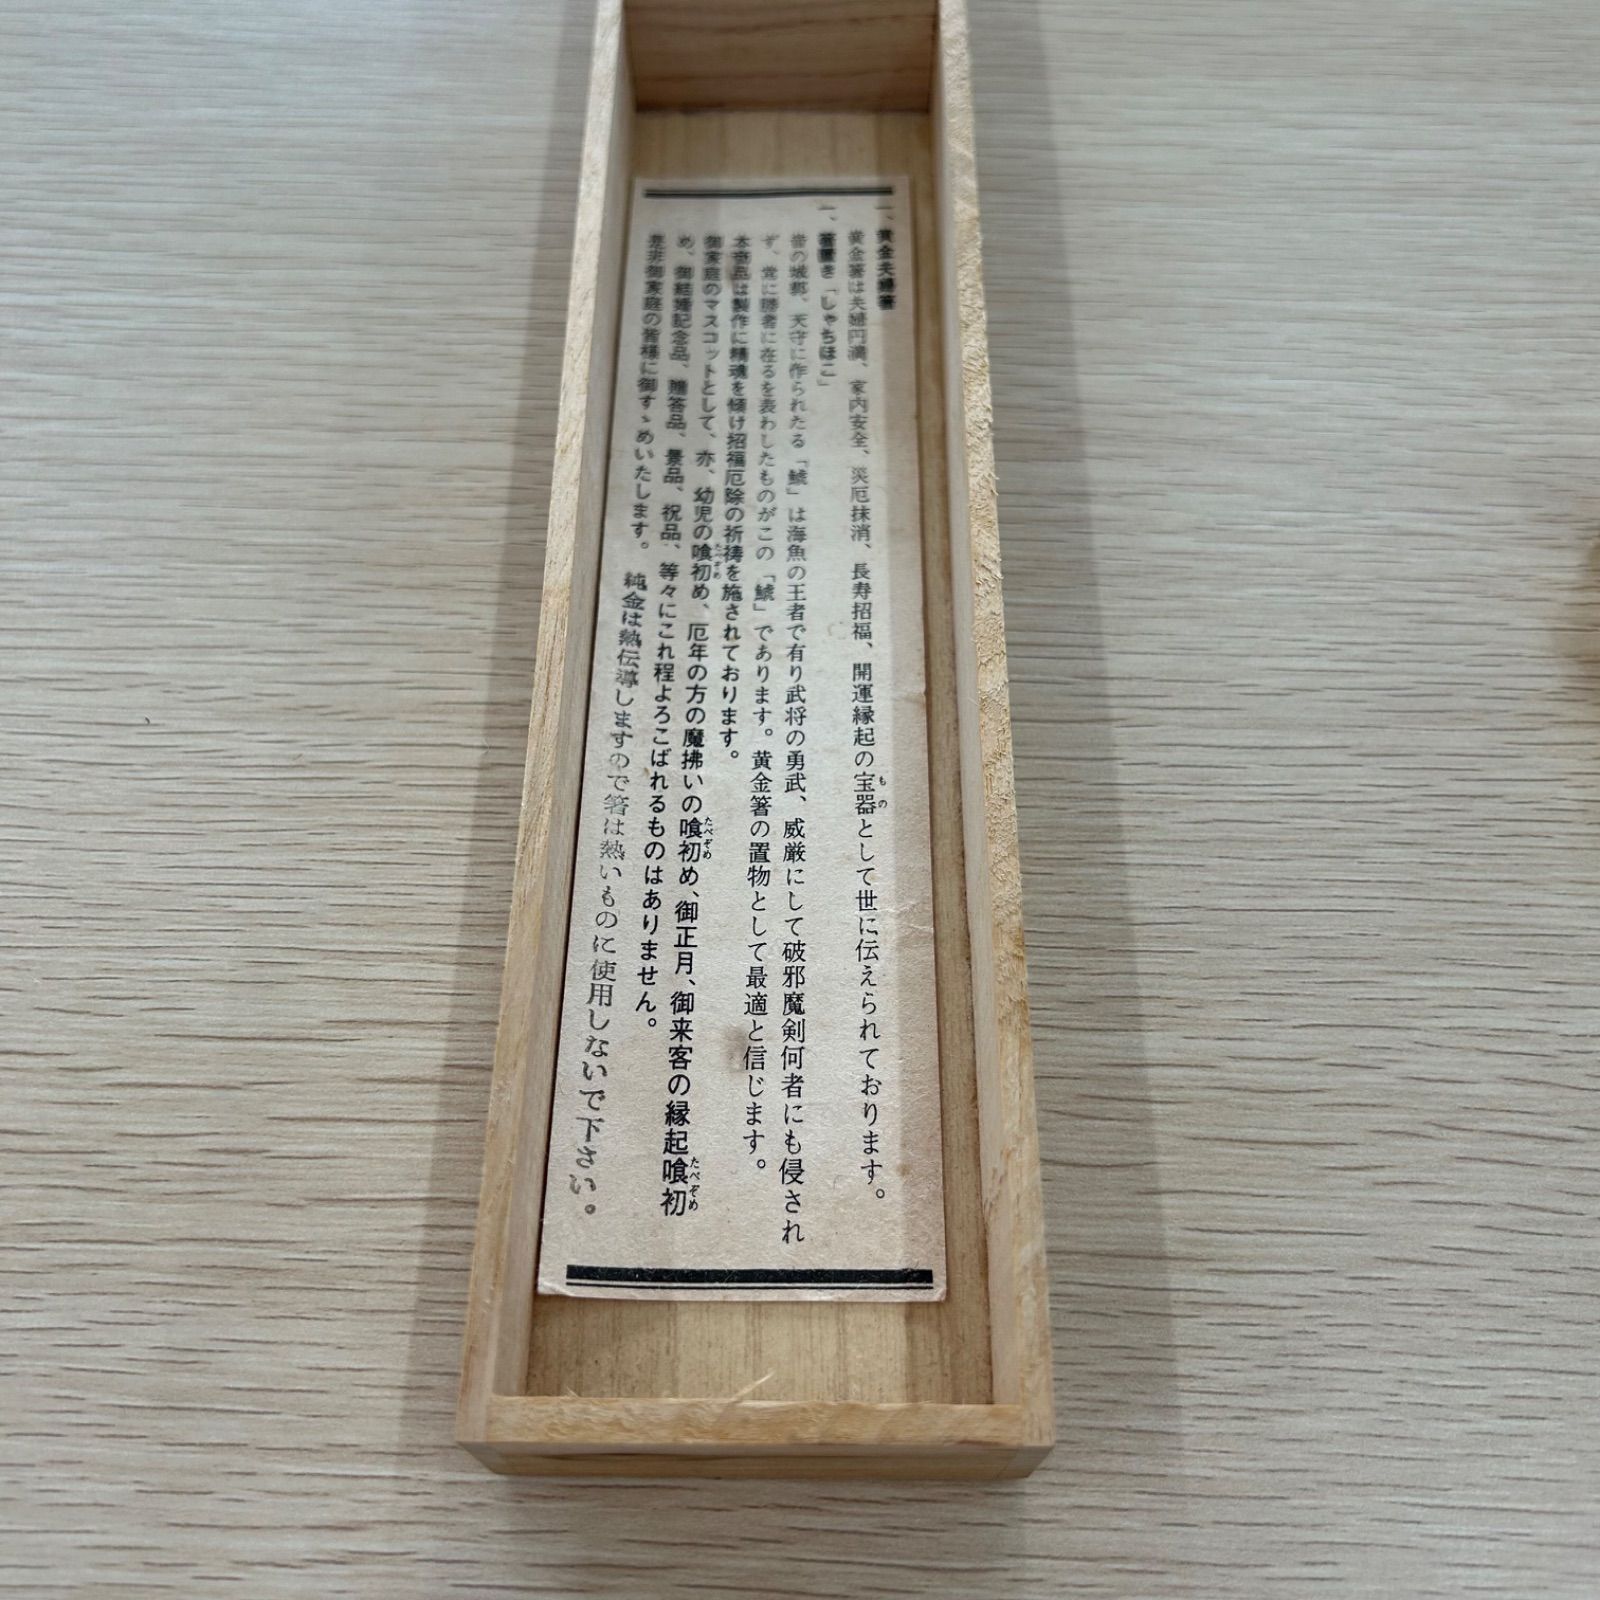 一、黄金夫婦箸
黄金箸は夫婦円満、家内安全、災厄抹消、長寿招福、開運縁起の宝器として世に伝えられております。
もの
一、箸置き「しゃちほこ」
昔の城郭、天守に作られたる「鯱」は海魚の王者で有り武将の勇武、威厳にして破邪魔剣何者にも侵され
ず、常に勝者に在るを表わしたものがこの「鯱」であります。黄金箸の置物として最適と信じます。
本商品は製作に精魂を傾け招福厄除の祈祷を施されております。
御家庭のマスコットとして、亦、幼児の喰初め、厄年の方の魔拂いの喰初め、御正月、御来客の縁起喰初
たべぞめ
たべぞめ
たべぞめ
め、御結婚記念品、贈答品、景品、祝品、等々にこれ程よろこばれるものはありません。
是非御家庭の皆様に御すゝめいたします。 純金は熱伝導しますので箸は熱いものに使用しないで下さい。